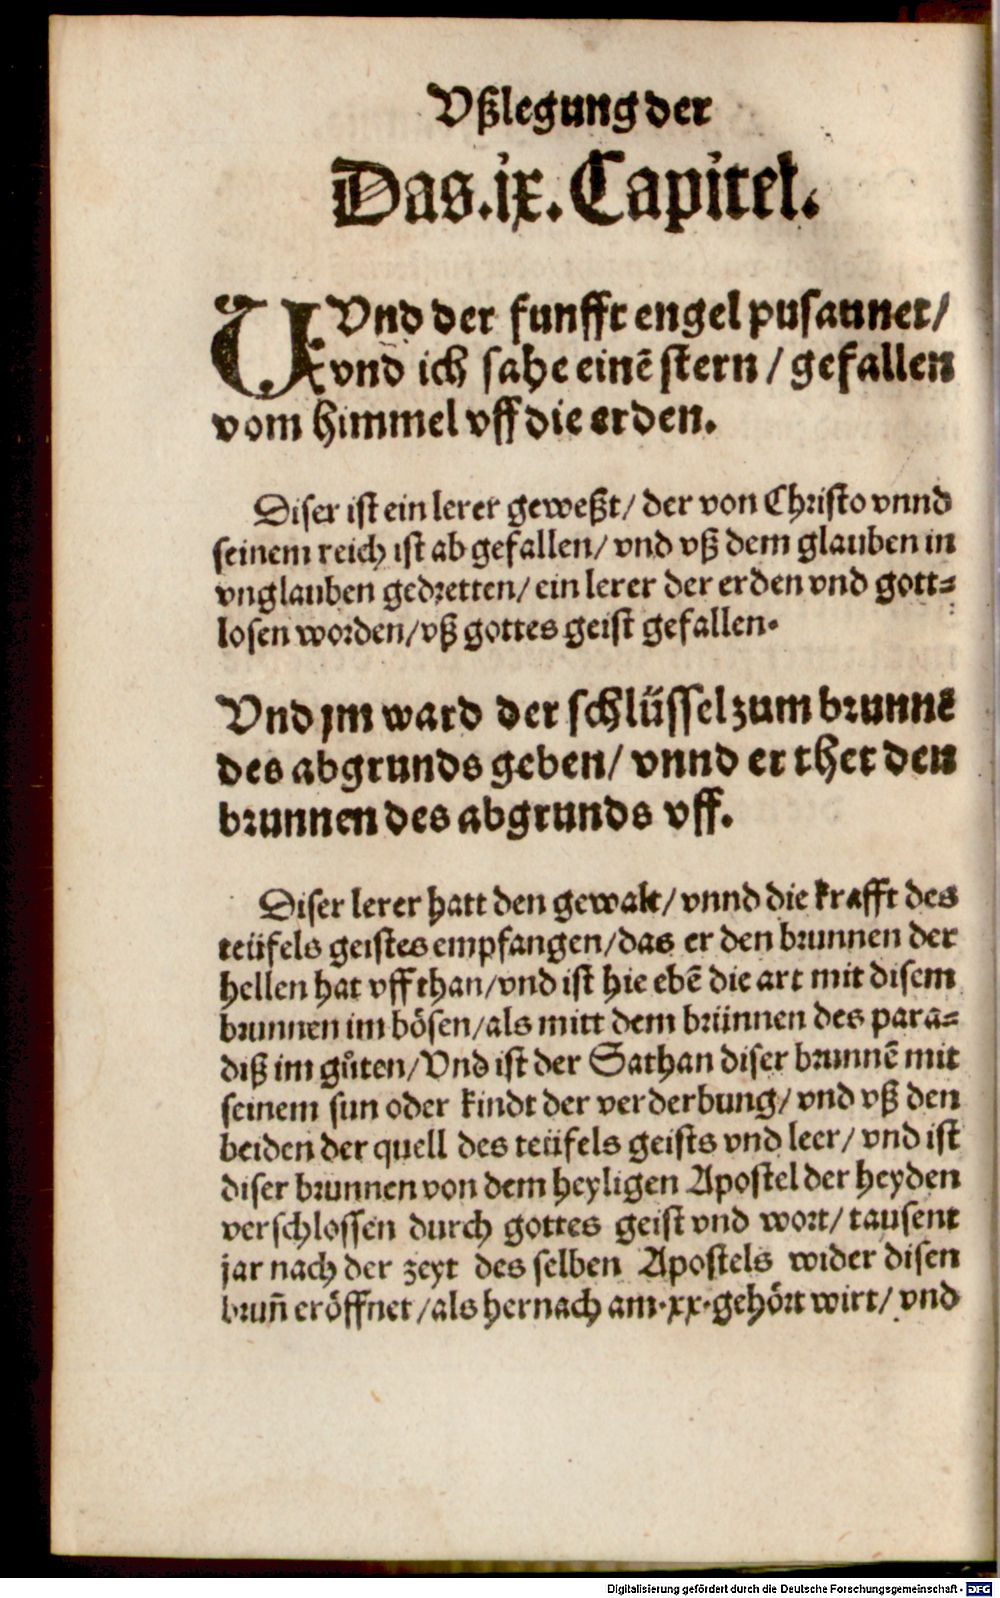 Vßlegung der
Das .ix. Capitel.
VVnd der funfft engel pusaunet/
vnd ich sahe einē stern / gefallen
vom himmel vff die erden.
Diser ist ein lerer geweßt/ der von Christo vnnd
seinem reich ist ab gefallen/ vnd vß dem glauben in
vnglauben gedretten/ ein lerer der erden vnd gott-
losen worden/ vß gottes geist gefallen.
Vnd jm ward der schlüssel zum brunnē
des abgrunds geben/ vnnd er thet den
brunnen des abgrunds vff.
Diser lerer hatt den gewalt/ vnnd die krafft des
teüfels geistes empfangen/ das er den brunnen der
hellen hat vff than/ vnd ist hie ebē die art mit disem
brunnen im bösen/ als mitt dem brünnen des para-
diß im gůten/ Vnd ist der Sathan diser brunnē mit
seinem sun oder kindt der verderbung/ vnd vß den
beiden der quell des teüfels geists vnd leer/ vnd ist
diser brunnen von dem heyligen Apostel der heyden
verschlossen durch gottes geist vnd wort/ tausent
jar nach der zeyt des selben Apostels wider disen
brun̄ eröffnet/ als hernach am .xx. gehört wirt/ vnd
Digitalisierung gefördert durch die Deutsche Forschungsgemeinschaft - DFG